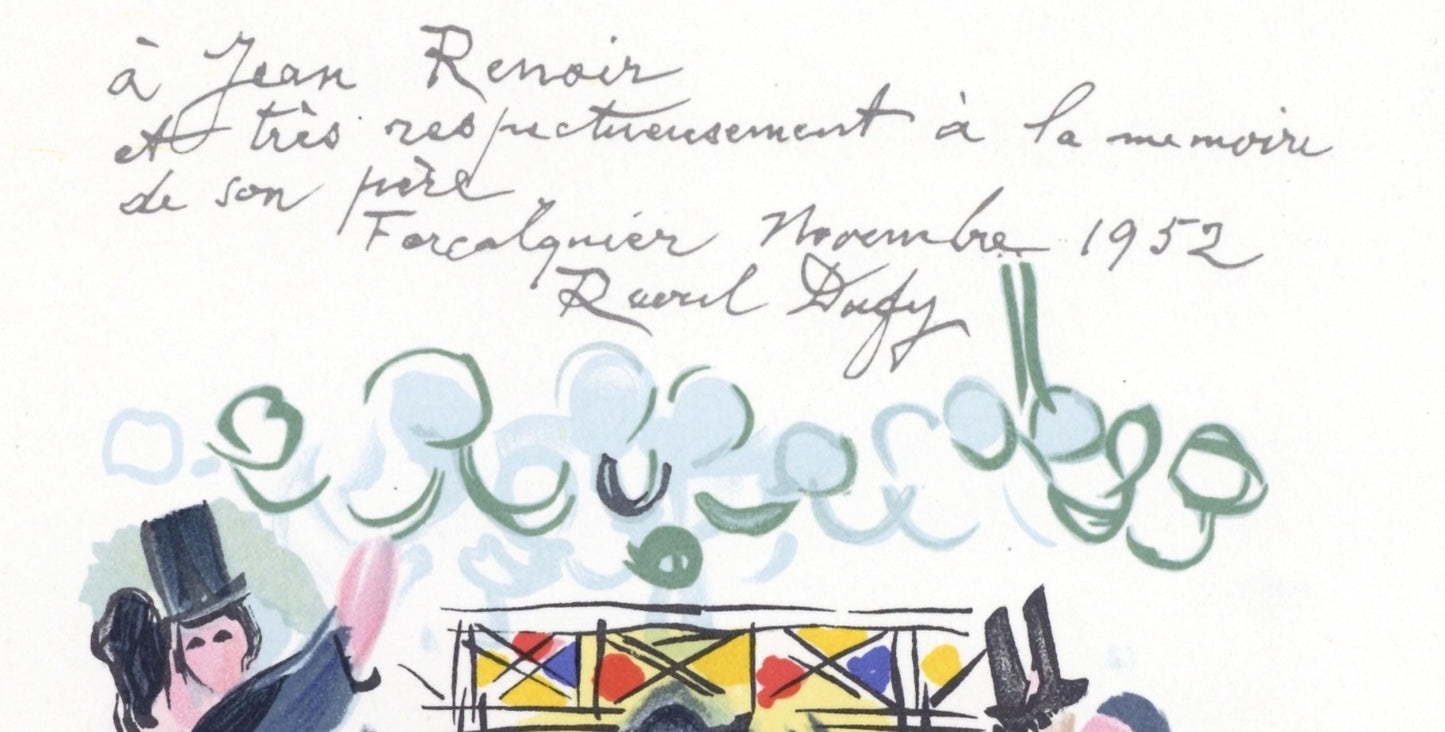 à Jean Renoir
et très respectueusement à la memoire
de son père
Forcalquier Novembre 1952
Raoul Dufy